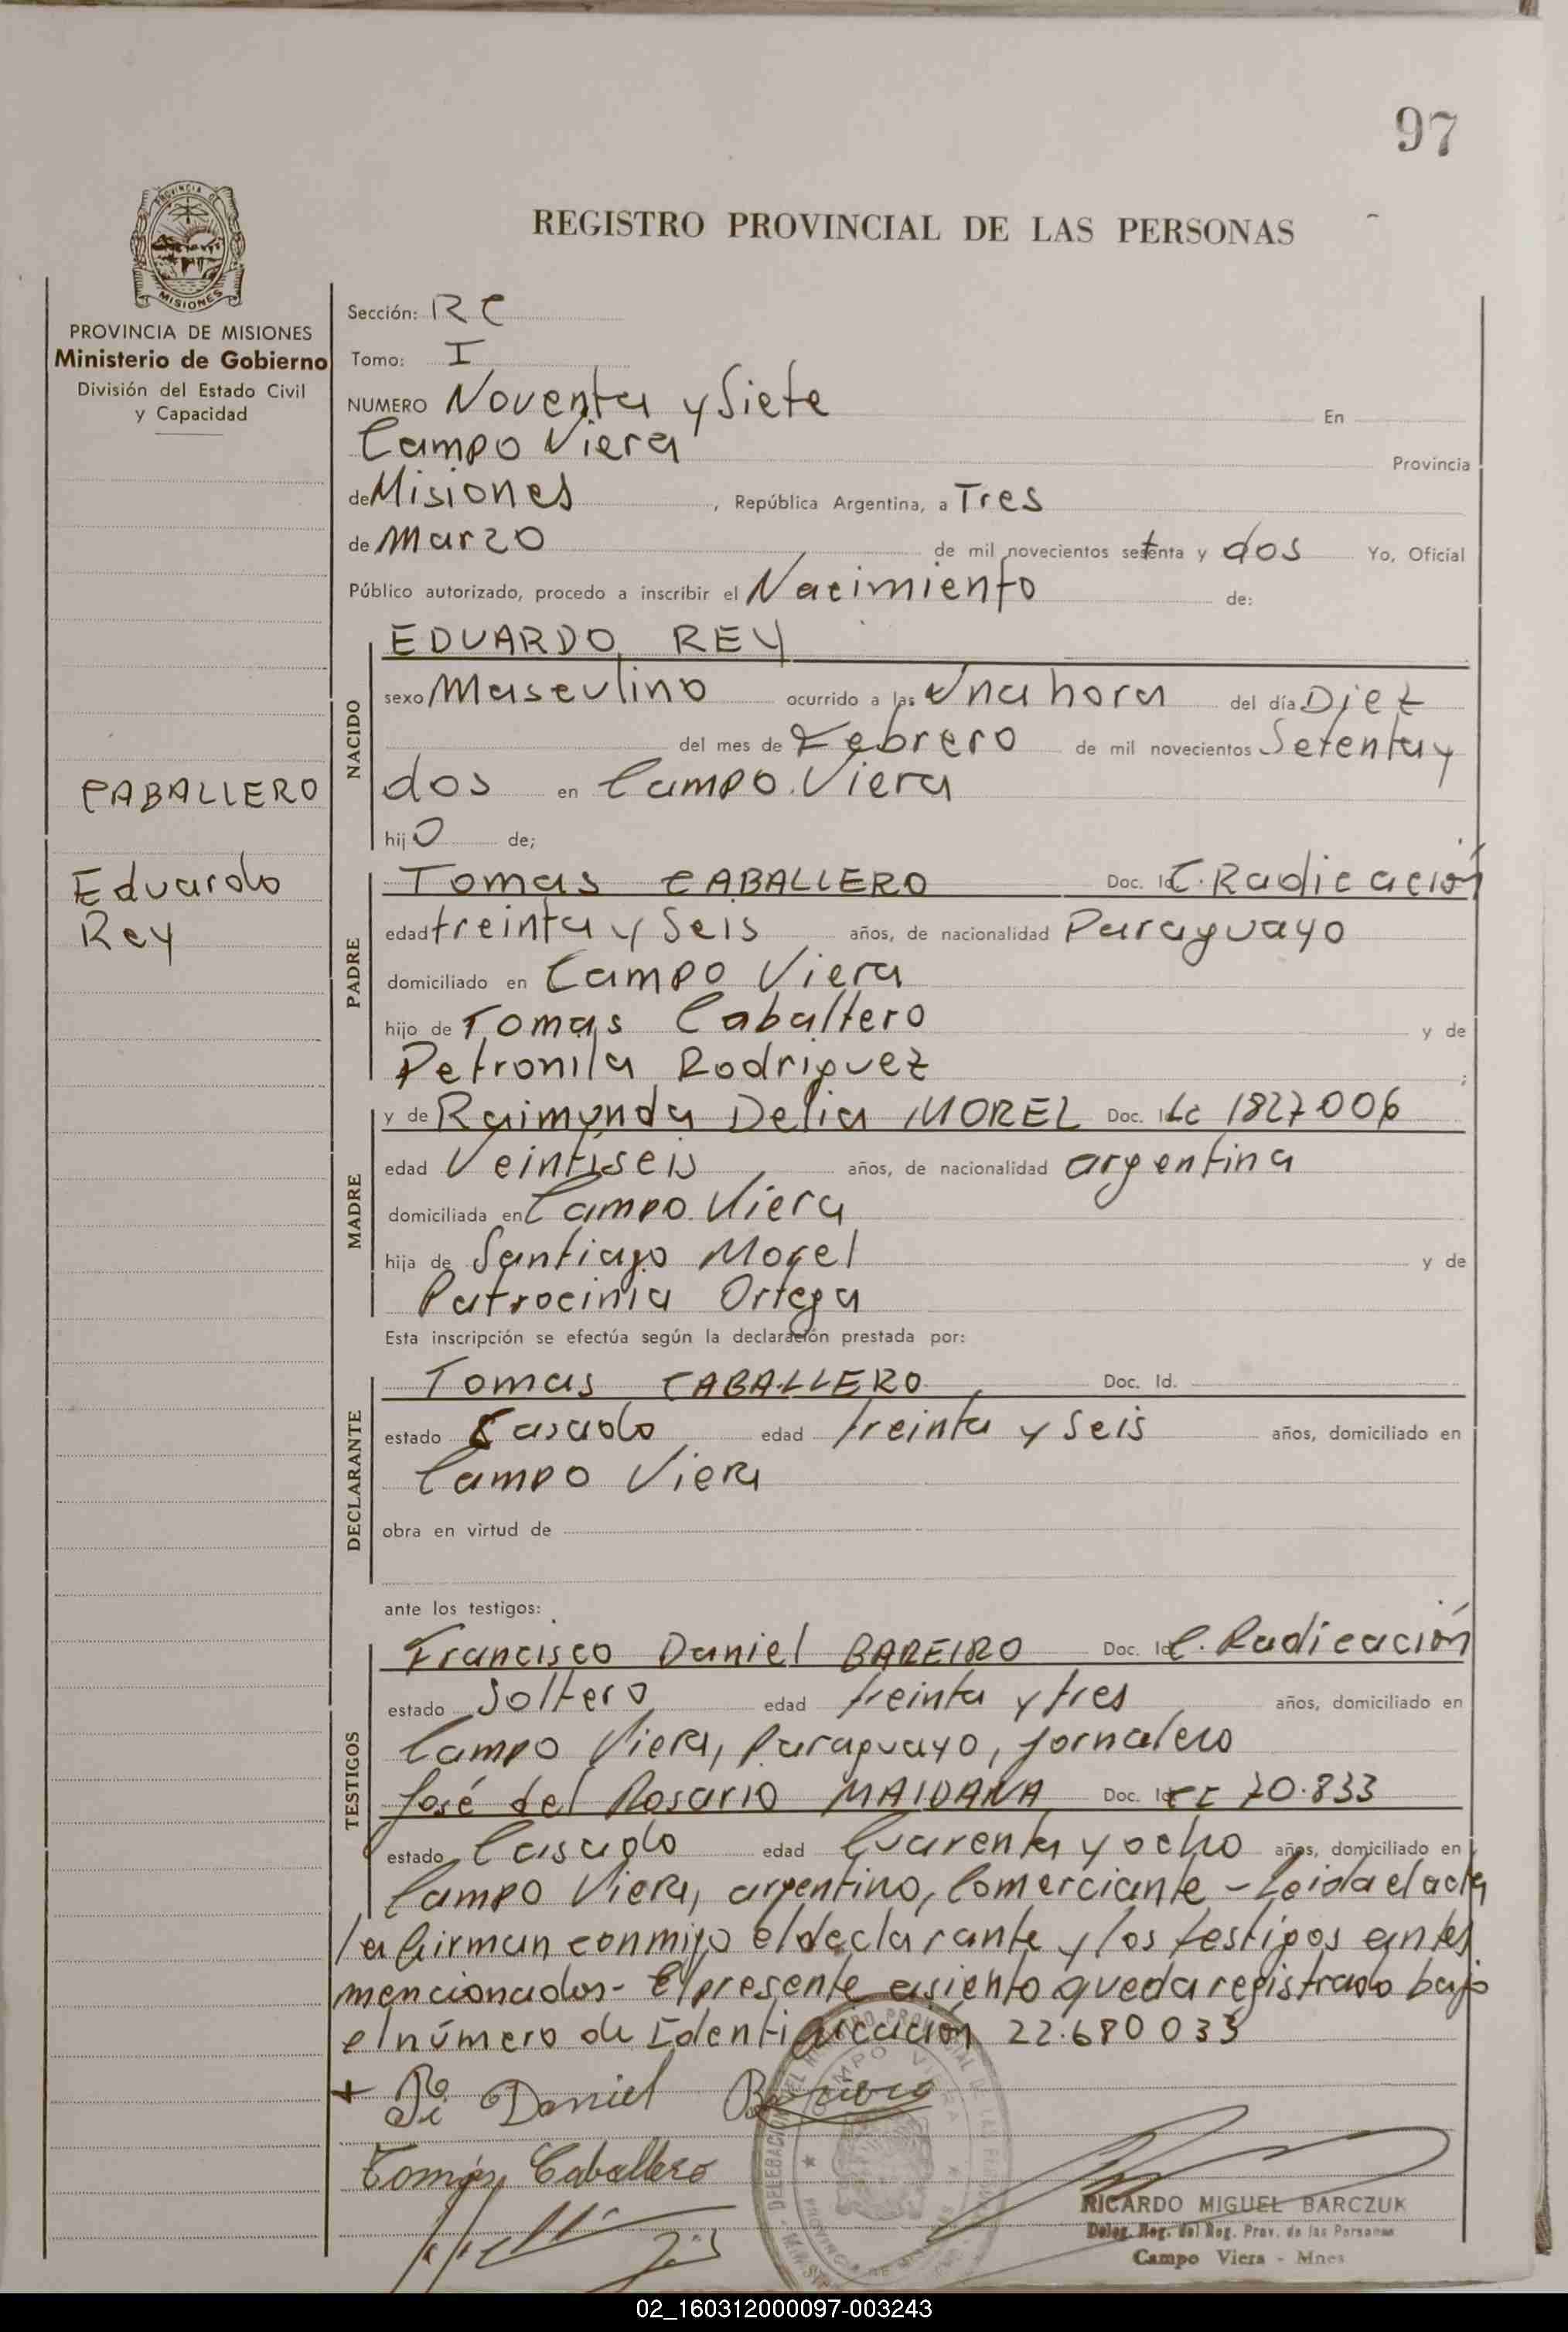 97
REGISTRO PROVINCIAL DE LAS PERSONAS
PROVINCIA DE MISIONES
Ministerio de Gobierno
División del Estado Civil
y Capacidad
CABALLERO
Eduardo
Rey
Sección: RC
Tomo: I
NUMERO Noventa y Siete En
Campo Viera Provincia
de Misiones, República Argentina, a Tres
de Marzo de mil novecientos setenta y dos Yo, Oficial
Público autorizado, procedo a inscribir el Nacimiento de:
NACIDO
EDUARDO REY
sexo Masculino ocurrido a las Una hora del día Diez
del mes de Febrero de mil novecientos Setenta y
dos en Campo Viera
hijo de;
PADRE
Tomas CABALLERO Doc. Id. C. Radicación
edad treinta y Seis años, de nacionalidad Paraguayo
domiciliado en Campo Viera
hijo de Tomas Caballero y de
Petronila Rodriguez ;
MADRE
y de Raimunda Delia MOREL Doc. Id. LC 1827006
edad Veintiseis años, de nacionalidad argentina
domiciliada en Campo Viera
hija de Santiago Morel y de
Patrocinia Ortega
Esta inscripción se efectúa según la declaración prestada por:
DECLARANTE
Tomas CABALLERO Doc. Id.
estado Casado edad treinta y Seis años, domiciliado en
Campo Viera
obra en virtud de
ante los testigos:
TESTIGOS
Francisco Daniel BAREIRO Doc. Id. C. Radicación
estado Soltero edad treinta y tres años, domiciliado en
Campo Viera, Paraguayo, jornalero
José del Rosario MAIDANA Doc. Id. 70.833
estado Casado edad Cuarenta y ocho años, domiciliado en
Campo Viera, argentino, Comerciante - Leida el acta
la firman conmigo el declarante y los testigos antes
mencionados- El presente asiento queda registrado bajo
el número de Identificación 22.680033
Daniel Bareiro
Tomás Caballero
RICARDO MIGUEL BARCZUK
Deleg. Reg. del Reg. Prov. de las Personas
Campo Viera - Mnes
02_160312000097-003243